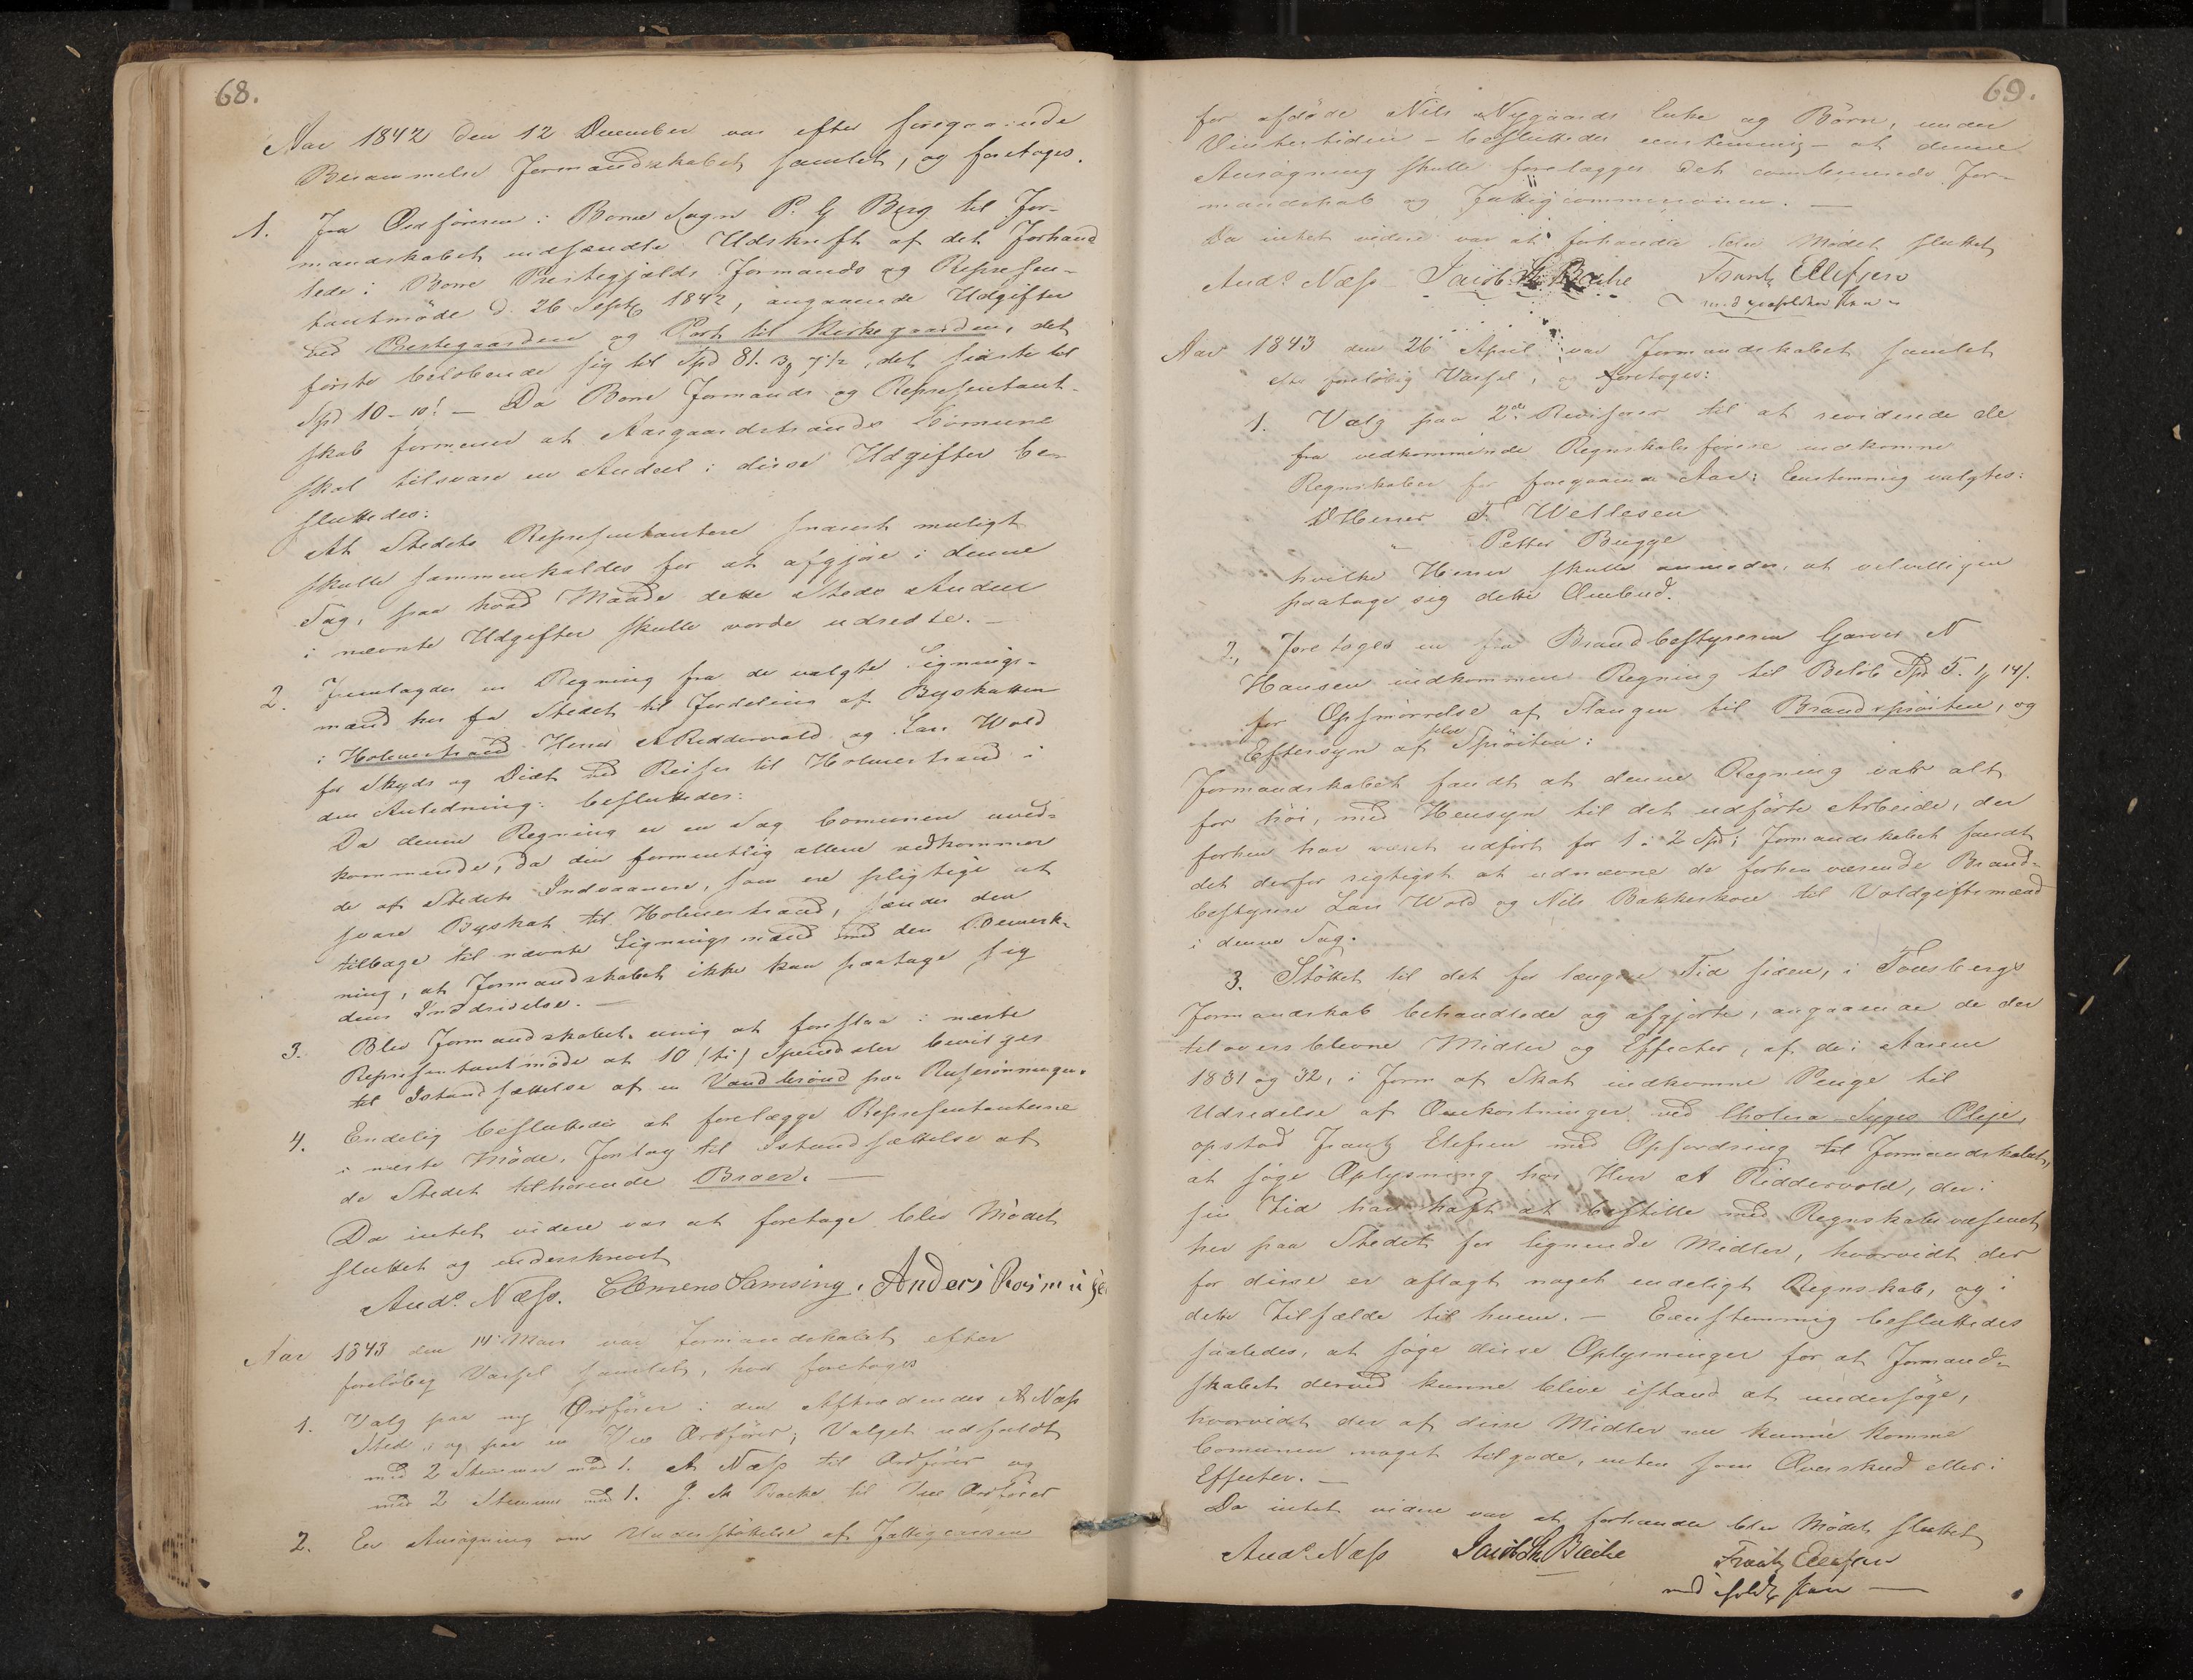 68.
Aar 1842 den 12 December var efter foregaaende
Berammelse Formandskabet samlet, og foretoges.
1. Fra Ordføreren i Borre Sogn P. G Berg til For-
mandskabet indsendte Udskrift af det Forhand
lede i Borre Præstegjælds Formands og Represen-
tantmøde d. 26 Septbr 1842, angaaende Udgifter
ved Prestegaarden og Port til Kirkegaarden, det
første beløbende sig til Spd 81. 3 7½, det sidste til
Spd 10 - 10! - Da Borre Formands og Representant-
skab formener at Aasgaardstrands Comune
skal tilsvare en Andeel i disse Udgifter be-
sluttedes:
At Stedets Representantere snarest muligt
skulle sammenkaldes for at afgjøre i denne
Sag, paa hvad Maade dette Steds Andeel
i nævnte Udgifter skulle vorde udredte. -
2. Fremlagdes en Regning fra de valgte Lignings-
mænd her fra Stedet til Fordeling af Byskatten
i Holmestrand Herrer A Riddervold og Lars Wold
for Skyds og Diæt ved Reiser til Holmestrand i
den Anledning: besluttedes:
Da denne Regning er en Sag Comunen uved-
kommende, da den formentlig allene vedkommer
de af Stedets Indvaanere, som ere pligtige at
svare Byskat til Holmestrand, sendes den
tilbage til nævnte Ligningsmænd med den Bemærk-
ning, at Formandskabet ikke kan paatage sig
dens Inddrivelse. -
3. Blev Formandskabet enig at foreslaa i næste
Representantmøde at 10 (ti) Speciedaler bevilges
til Istandsættelse af en Vandbrønd paa
4. Endelig besluttedes at forelægge Representanterne
i næste Møde, Forslag til Istandsættelse af
de Stedet tilhørende Broer. -
Da intet videre var at foretage blev Mødet
sluttet og underskrevet
Ands. Næss. Clemens Samsing. Anders
Aar 1843 den 14 Mars var Formandskabet efter
foreløbig Varsel samlet, hvor foretoges
1. Valg paa ny Ordfører i den Aftrædendes A Næss
Sted, og paa en Vice Ordfører; Valget udfaldt
med 2 Stemmer mod 1. A Næss til Ordfører og
med 2 Stemmer mod 1. J. Sh Bache til Vice Ordfører
2. En Ansøgning om Understøttelse af Fattigcassen
69.
for afdøde Nils Nygaards Enke og Børn, under
Vintertiden - besluttedes eenstemmig - at denne
Ansøgning skulle forelægges det combinerede For-
mandskab og Fattigcommissionen. -
Da intet videre var at forhandle blev Mødet sluttet
Ands. Næss Jacob Sh Bache Frantz Ellefsen
med paaholden Pen
Aar 1843 den 26 April var Formandskabet samlet
efter foreløbig Varsel, og foretoges:
1. Valg paa 2de Revisorer til at revidere de
fra vedkommende Regnskabsførere indkomne
Regnskaber for foregaaende Aar: Eenstemmig valgtes:
D Herrer F. Wetlesen
" Petter Bugge
hvilke Herrer skulle anmodes, at velvilligen
paatage sig dette Ombud.
2, Foretoges en fra Brandbestyreren Garver N
Hansen indkommen Regning til Beløb Spd 5. 1 14/.
for Opsmørrelse af Slangen til Brandsprøiten, og
Eftersyn af selve Sprøiten:
Formandskabet fandt at denne Regning var alt
for høi, med Hensyn til det udførte Arbeide, der
forhen har været udført for 1 à 2 Spd; Formandskabet fandt
det derfor rigtigst at udnævne de forhen værende Brand-
bestyrere Lars Wold og Nils Bakkeskow til Voldgiftsmænd
i denne Sag.
3. Støttet til det for længere Tid siden, i Tønsbergs
Formandskab behandlede og afgjorte, angaaende de der
tiloversblevne Midler og Effecter, af de i Aarene
1831 og 32, i Form af Skat indkomne Penge til
Udredelse af Omkostninger ved Cholera-Syges Pleje,
opstod Frantz Elefsen med Opfordring til Formandskabet,
at søge Oplysning hos Herr A Riddervold, der i
sin Tid har haft at bestille med Regnskabsvæsenet
her paa Stedet for lignende Midler, hvorvidt der
for disse er aflagt noget endeligt Regnskab, og i
dette Tilfælde til hvem. - Eenstemmig besluttedes
saaledes, at søge disse Oplysninger for at Formand-
skabet derved kunne blive istand at undersøge,
hvorvidt der af disse Midler nu kunne komme
Comunen noget tilgode, enten som Overskud eller i
Effecter. -
Da intet videre var at forhandle blev Mødet sluttet
Ands. Næss Jacob Sh Bache Frantz Ellefsen
med iholdt Pen